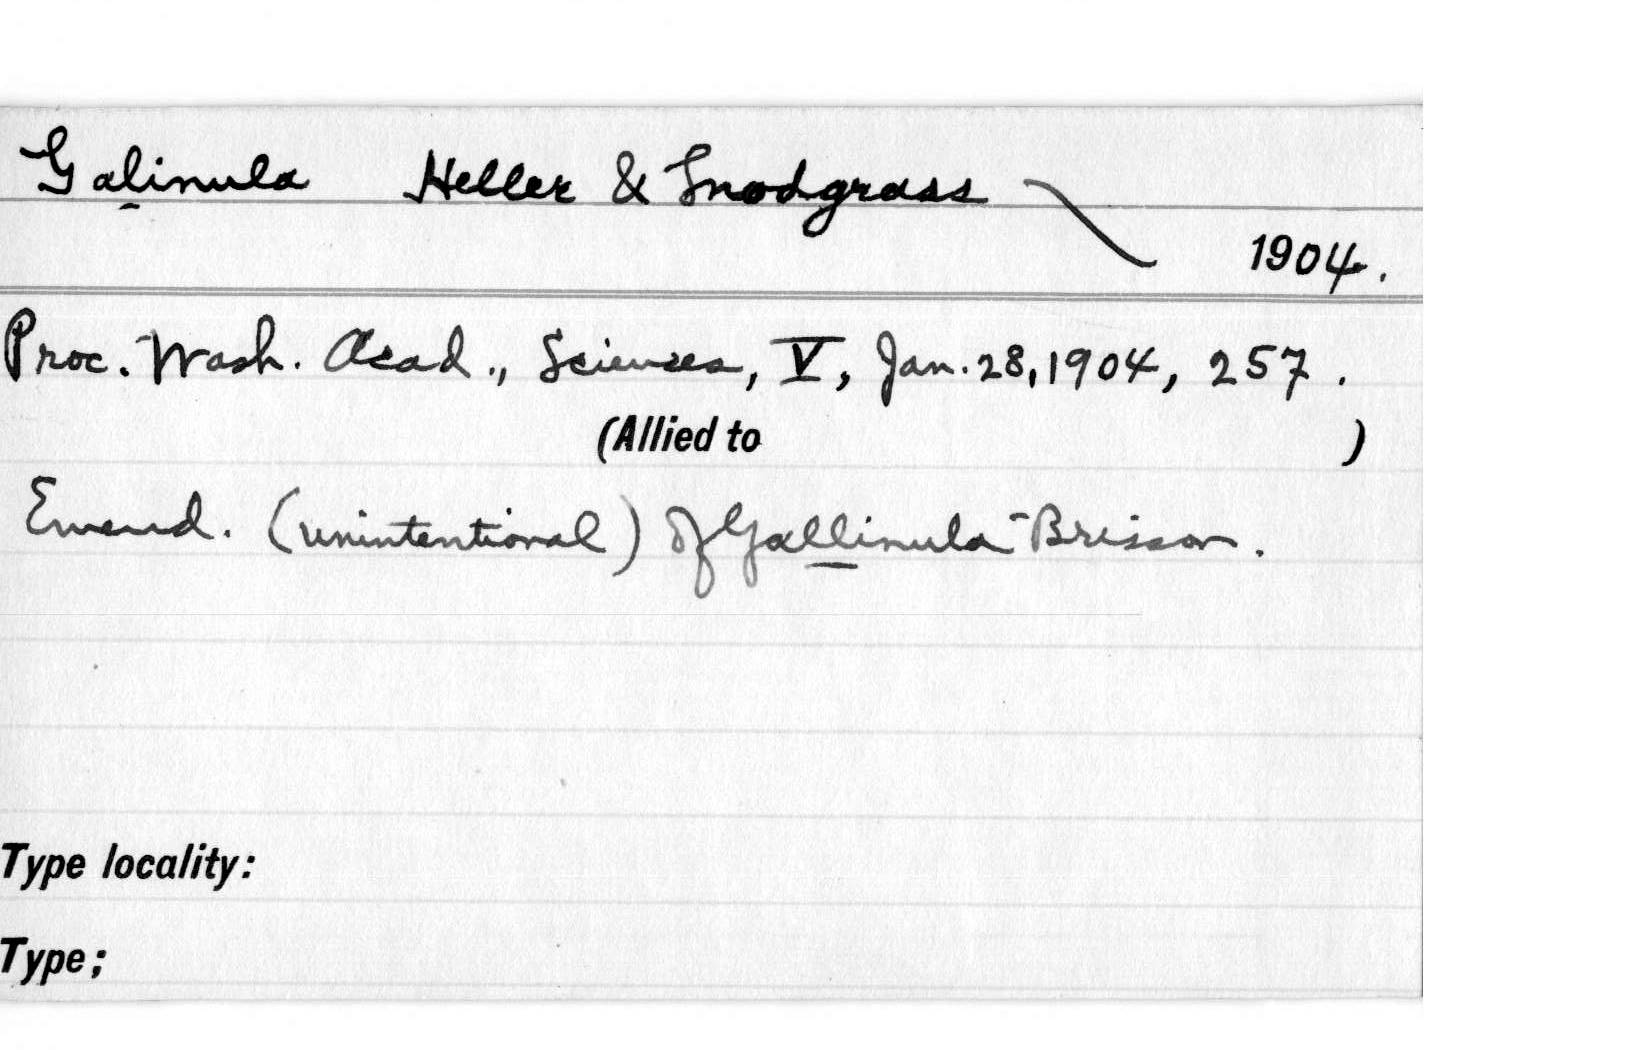 Galinula Heller & Snodgrass
1904.
Proc. Wash. Acad., Sciences, V, Jan. 28, 1904, 257.
(Allied to )
Emend. (unintentional) of Gallinula Brisson.
Type locality:
Type;